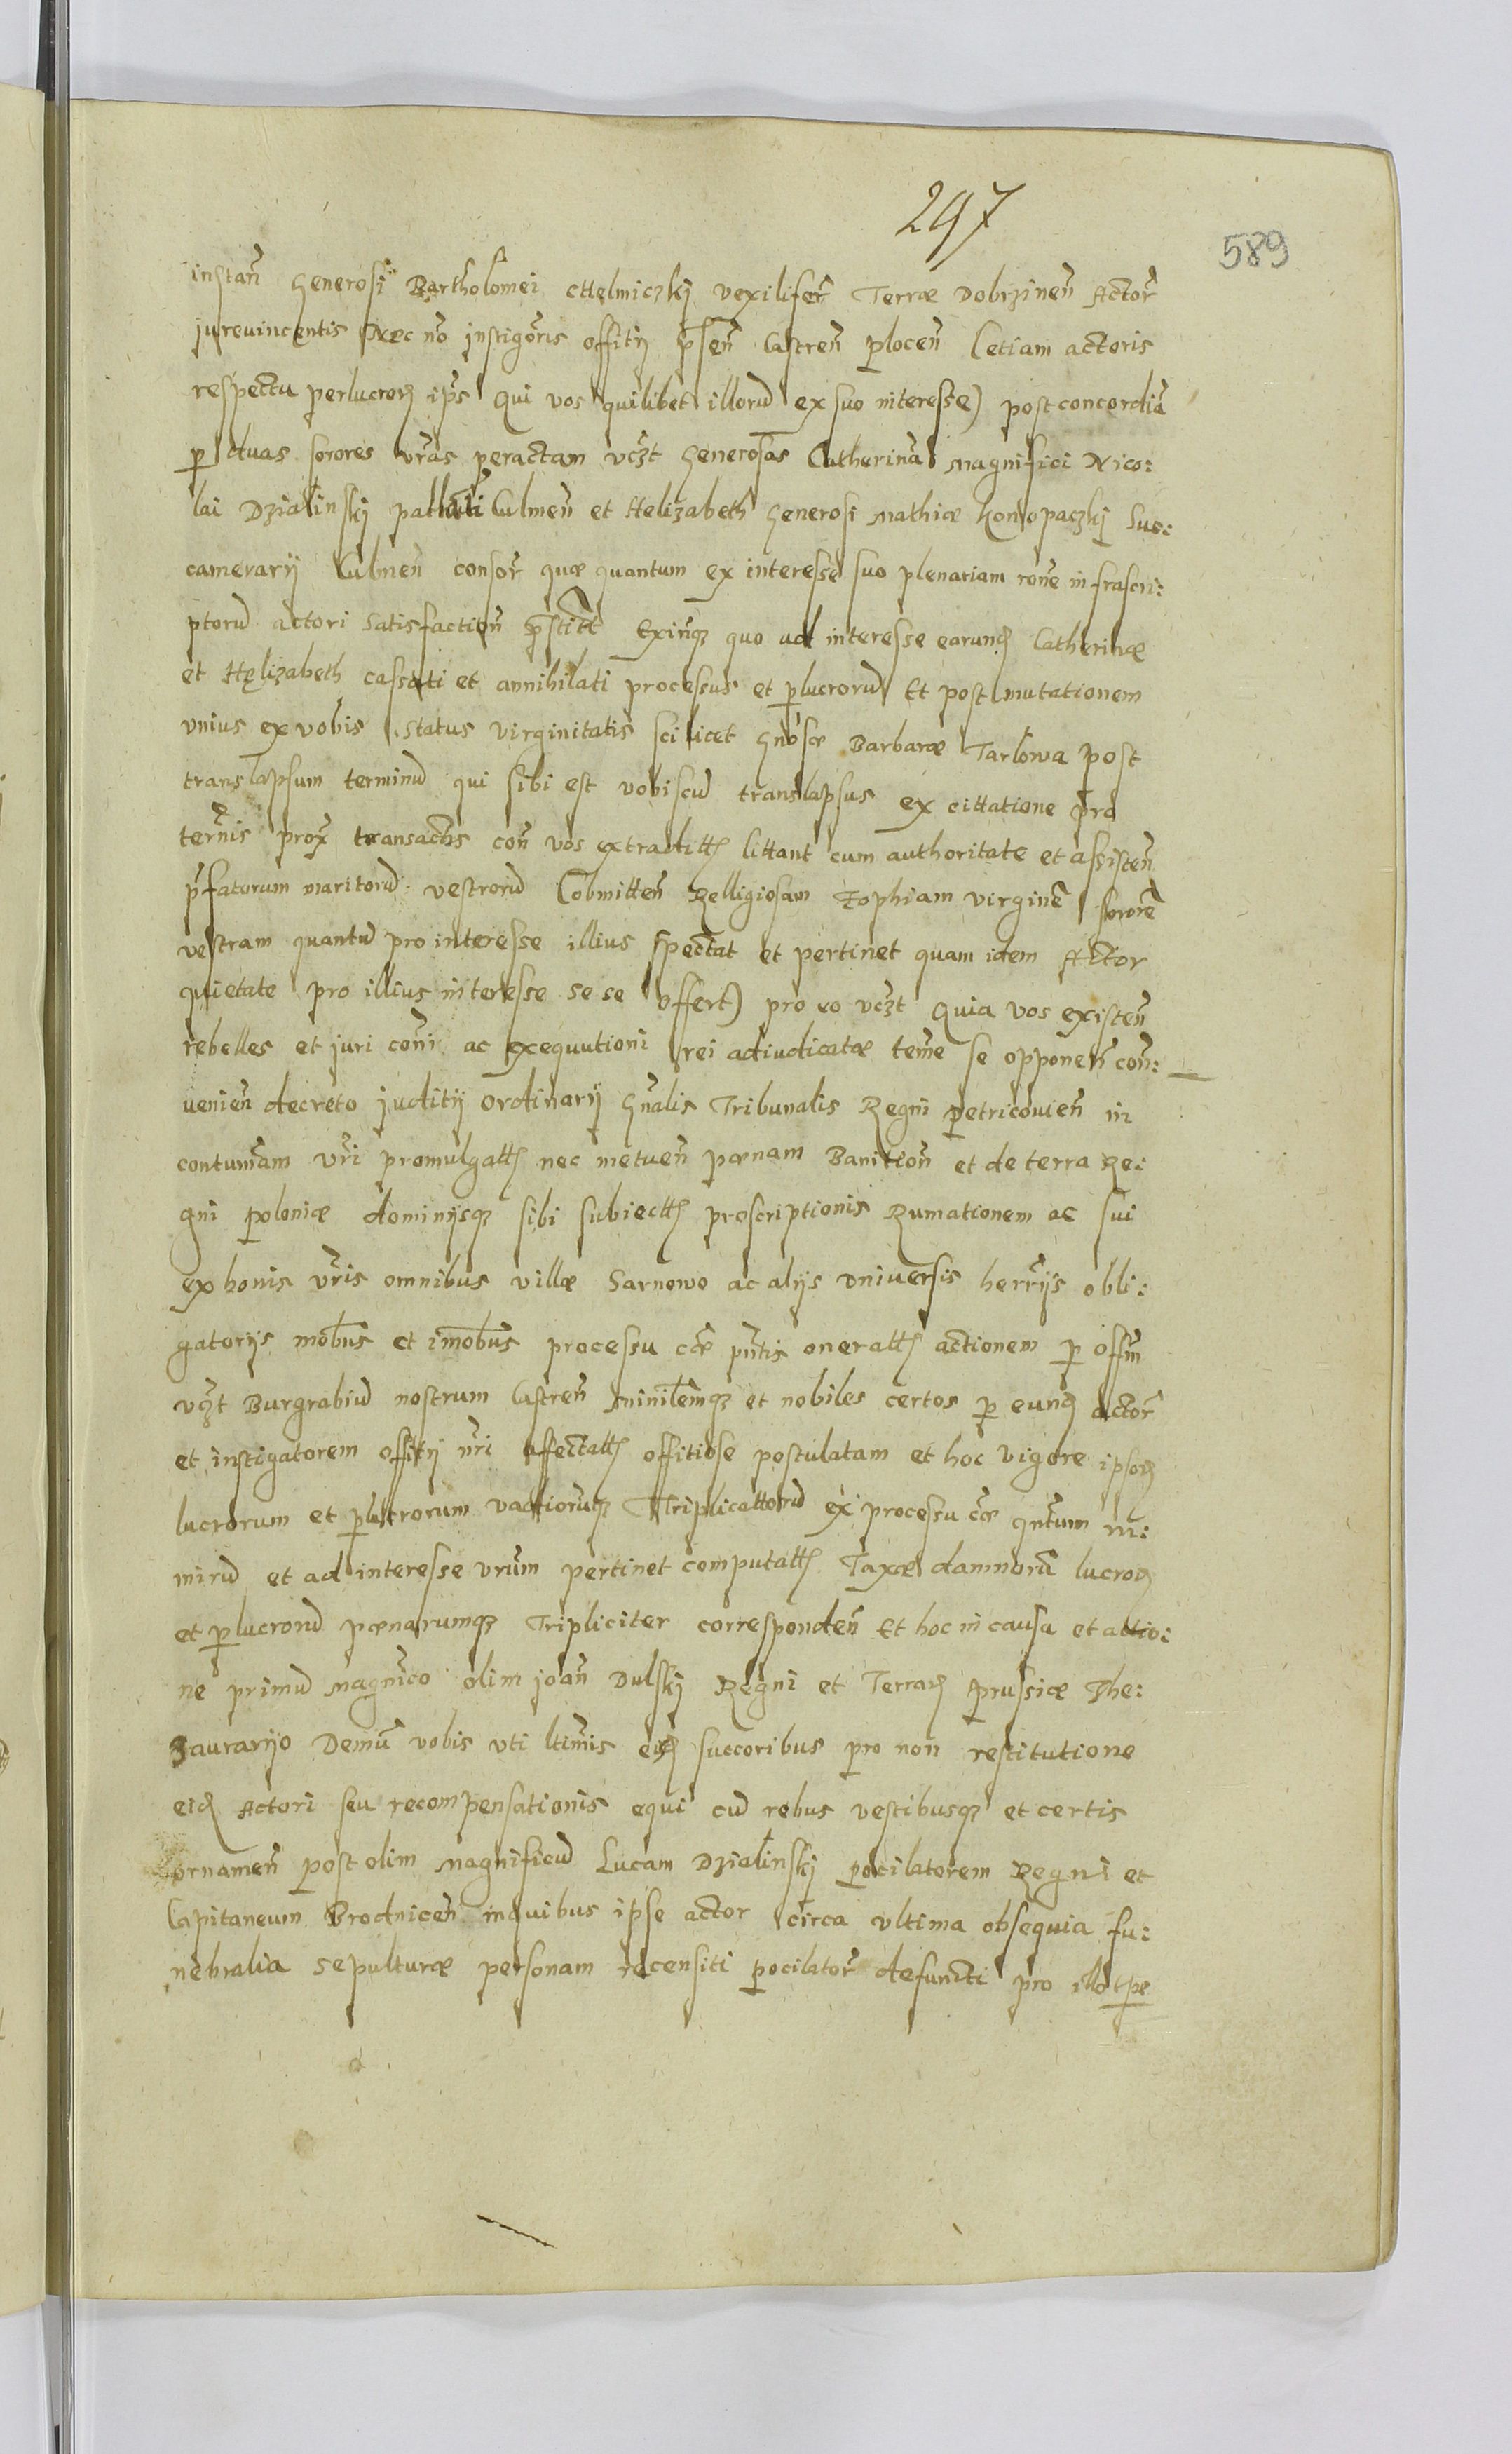 297
589
instan̄ Generosi Bartholomei Chełmiczkj vexilifer̄ Terræ Dobrzinen̄ Actor̄
jurevincentis Nec nō Instigōris offitij p̄sen̄ Castren̄ plocen̄ (etiam actoris
respectu perlucror ip̄s Qui vos quilibet illorū ex suo interesse) post concordiā
p duas sorores vr̄as peractam vcz̄t Generosas Catherinā Magnifici Nico:
lai Dzialinskj pallati Culmen̄ et Helizabeth Generosi Mathiæ Konopaczkj Suc:
camerarij Culmen̄ consor̄ quæ quantum ex interesse suo plenariam rōne infrascri:
ptorū actori satisfaction̄ p̄stitt Exinqz quo ad interesse earund Catherinæ
et Helizabeth cassati et annihilati processus et plucrorū Et post mutationem
vnius ex vobis status virginitatis scilicet Gnōsæ Barbaræ Tarłowa post
translapsum terminū qui sibi est vobiscū translapsus ex cittatione pro
ter̄nis prox̄ transactis con̄ vos extraditt littant cum authoritate et assisten̄
p̄fatorum maritorū vestrorū (obmitten̄ Relligiosam Zophiam virginē sororē
vestram quantū pro interesse illius spectat et pertinet quam idem Actor
quietate pro illius interesse se se offert) pro eo vcz̄t Quia vos existen̄
rebelles et juri cōni ac exequutioni rei adiudicatæ teme se opponen̄ con̄:
uenien̄ decreto juditij ordinarij Gn̄alis Tribunalis Regni petricouien̄ in
contumām vr̄i promulgatt nec metuen̄ pænam Banition̄ et de terra Re:
gni poloniæ dominijsqz sibi subiectt proscriptionis Rumationem ac sui
ex bonis vr̄is omnibus villæ Sarnowo ac alijs vniversis herrijs obli:
gatorijs mōbus et imōbus processu cæ pn̄tis oneratt actionem p Offm
vcz̄t Burgrabiū nostrum Castren̄ minilemqz et nobiles certos p eund actor̄
et instigatorem offitij nr̄i affectatt offitiose postulatam et hoc vigore ipsor
lucrorum et plucrorum vadiorūqz Triplicattorū ex processu cæ qntum ni:
mirū et ad interesse vrūm pertinet computatt Taxæ damnorū lucror
et plucrorū pænarumqz Tripliciter corresponden̄ Et hoc in causa et actio:
ne primū Magnīco olim joan̄ Dulskj Regni et Terrar Prussiæ The:
zaurarijo Demū vobis vti ltimis eius succoribus pro non restitutione
eid Actori seu recompensationis equi cū rebus vestibusqz et certis
ornamen̄ post olim Magnificū Lucam Dzialinskj pocilatorem Regni et
Capitaneum Brodnicen̄ in quibus ipse actor circa vltima obsequia fu:
nebralia sepulturæ personam recensiti pocilator̄ defuncti pro illo tpe